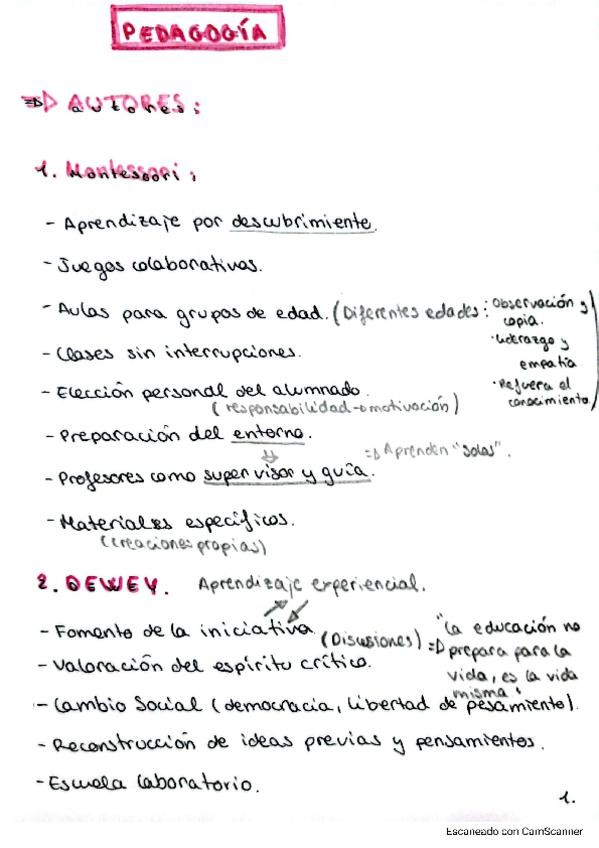 PEDAGOGÍA
=> AUTORES:
1. Montessori:
- Aprendizaje por descubrimiento.
- Juegos colaborativos.
- Aulas para grupos de edad. (Diferentes edades: Observación y
copia.
· Liderazgo y
empatía
· Refuerza el
conocimiento.)
- Clases sin interrupciones.
- Elección personal del alumnado.
(responsabilidad → motivación)
- Preparación del entorno.
- Profesores como supervisor y guía. => Aprenden "solas".
- Materiales específicos.
(creaciones propias)
2. DEWEY. Aprendizaje experiencial.
- Fomento de la iniciativa (Disusiones) => "La educación no
prepara para la
vida, es la vida
misma".
- Valoración del espíritu crítico.
- Cambio Social (democracia, libertad de pesamiento).
- Reconstrucción de ideas previas y pensamientos.
- Escuela laboratorio.
1.
Escaneado con CamScanner